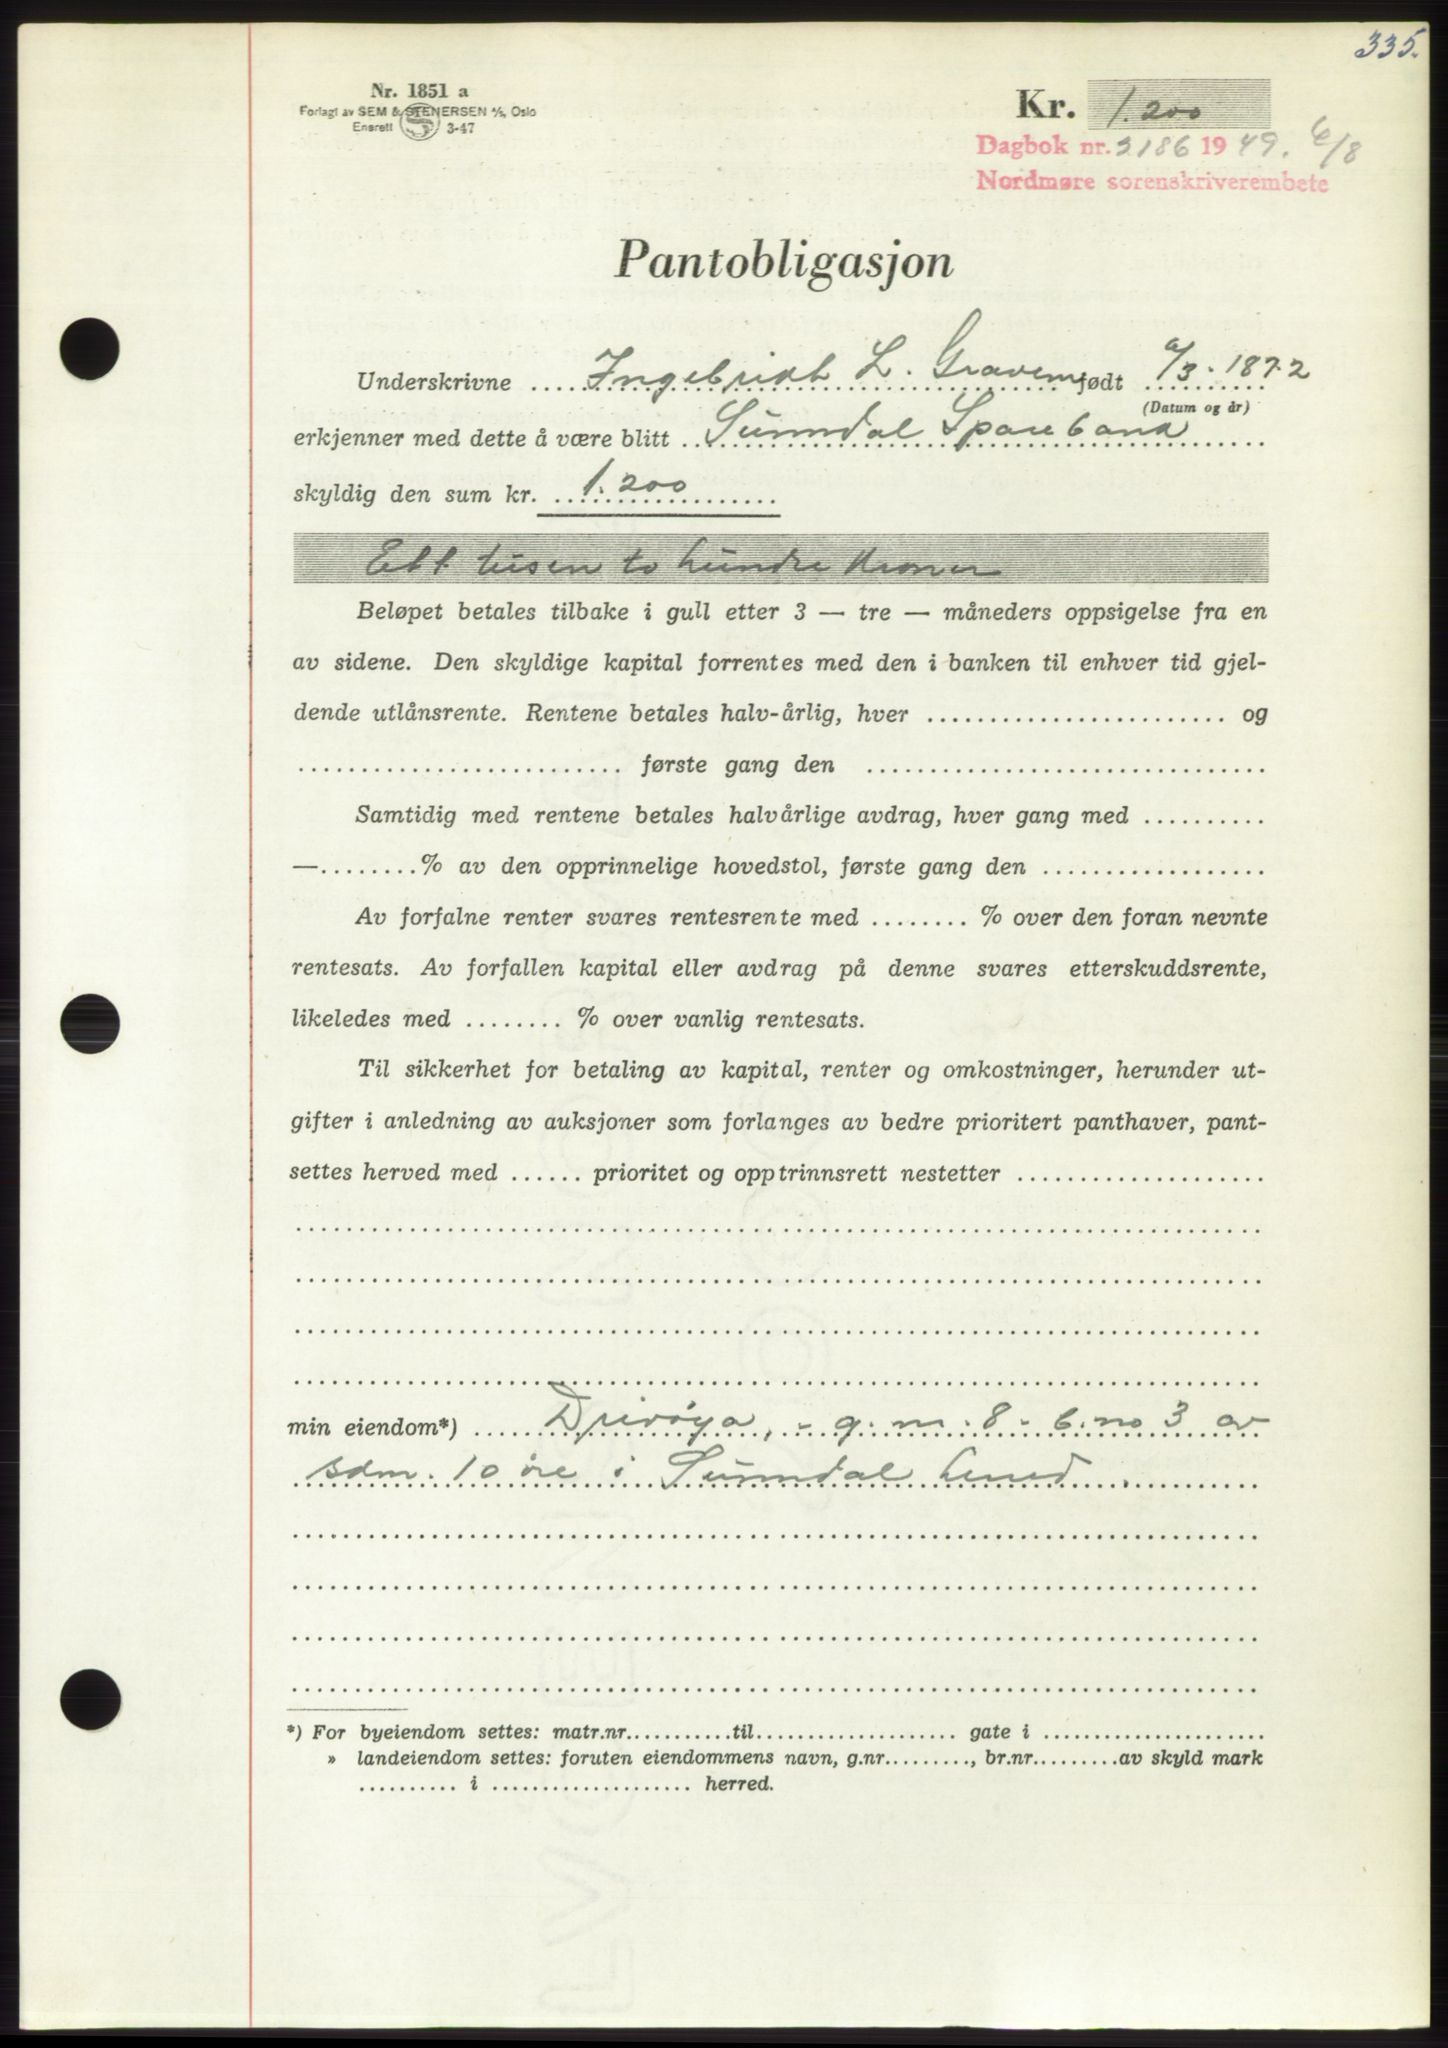 335.
Nr. 1851 a
Forlagt av SEM & STENERSEN A/S, Oslo
Enerett 3-47
Kr. 1.200
Dagbok nr. 2186 1949. 6/8
Nordmøre sorenskriverembete
Pantobligasjon
Underskrivne Ingebrigt L. Gravem født /3-1872
(Datum og år)
erkjenner med dette å være blitt Sunndal Sparebank
skyldig den sum kr. 1.200
Ett tusen to hundre kroner
Beløpet betales tilbake i gull etter 3 — tre — måneders oppsigelse fra en
av sidene. Den skyldige kapital forrentes med den i banken til enhver tid gjel-
dende utlånsrente. Rentene betales halv-årlig, hver ........................ og
.......................... første gang den ................................
Samtidig med rentene betales halvårlige avdrag, hver gang med ..........
—........% av den opprinnelige hovedstol, første gang den ..................
Av forfalne renter svares rentesrente med ........ % over den foran nevnte
rentesats. Av forfallen kapital eller avdrag på denne svares etterskuddsrente,
likeledes med ........ % over vanlig rentesats.
Til sikkerhet for betaling av kapital, renter og omkostninger, herunder ut-
gifter i anledning av auksjoner som forlanges av bedre prioritert panthaver, pant-
settes herved med ...... prioritet og opptrinnsrett nestetter ....................
min eiendom*) Drivøya, - g. nr. 8 - b. no 3 av
sdm. 10 øre i Sunndal herred.
*) For byeiendom settes: matr.nr...........til.................... gate i ......................
» landeiendom settes: foruten eiendommens navn, g.nr........., br.nr.........av skyld mark
.......... i .................... herred.